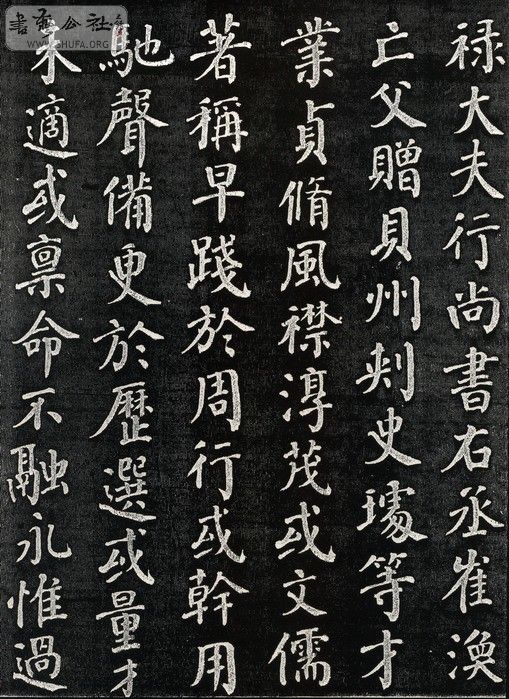 禄大夫行尚書右丞崔渙
亡父贈貝州刾史璩等才
業貞脩風襟淳茂或文儒
著稱早踐於周行或幹用
馳聲備更於歷選或量才
未適或禀命不融永惟過
書法公社
SHUFA.ORG